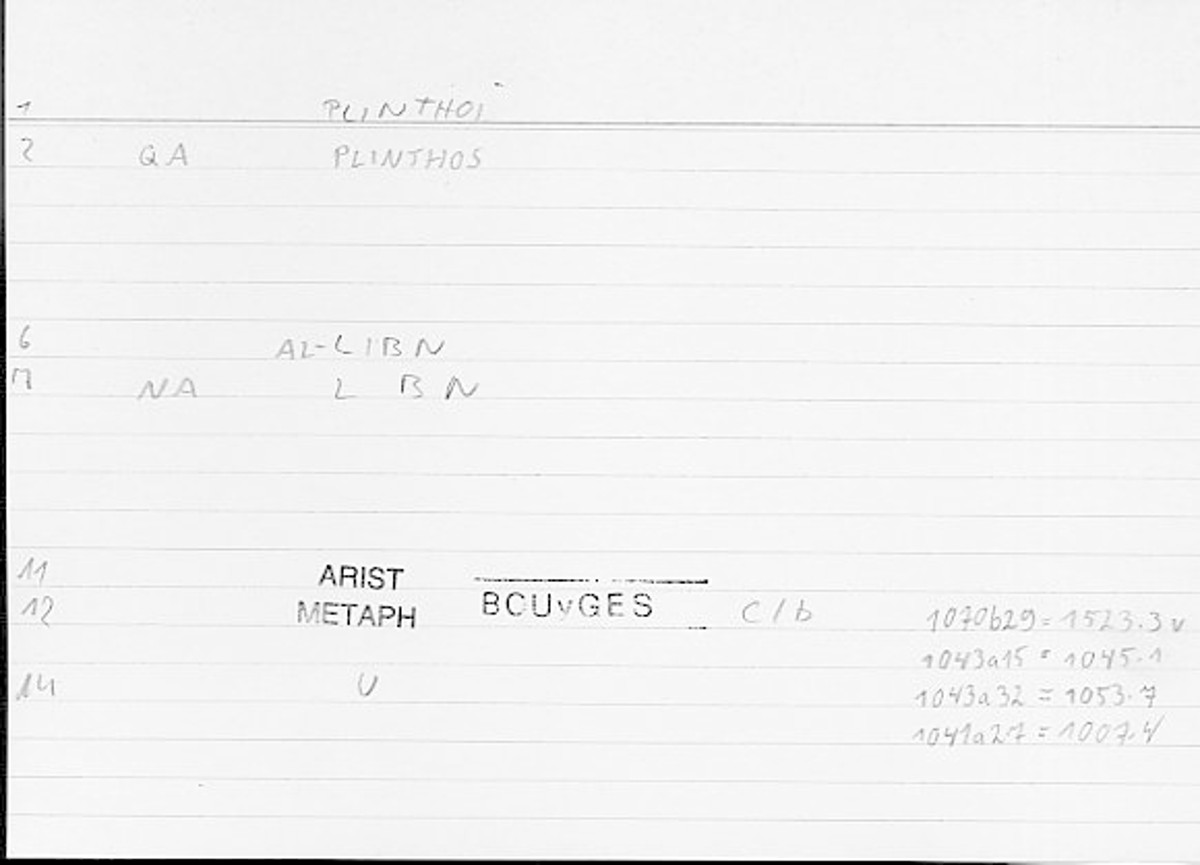 1 PLINTHOI
2 QA PLINTHOS
6 AL-LIBN
7 NA L B N
11 ARIST
12 METAPH BOUvGES C/b 1070b29=1523.3 v
1043a15 = 1045.1
14 U 1043a32 = 1053.7
1041a27 = 1007.4